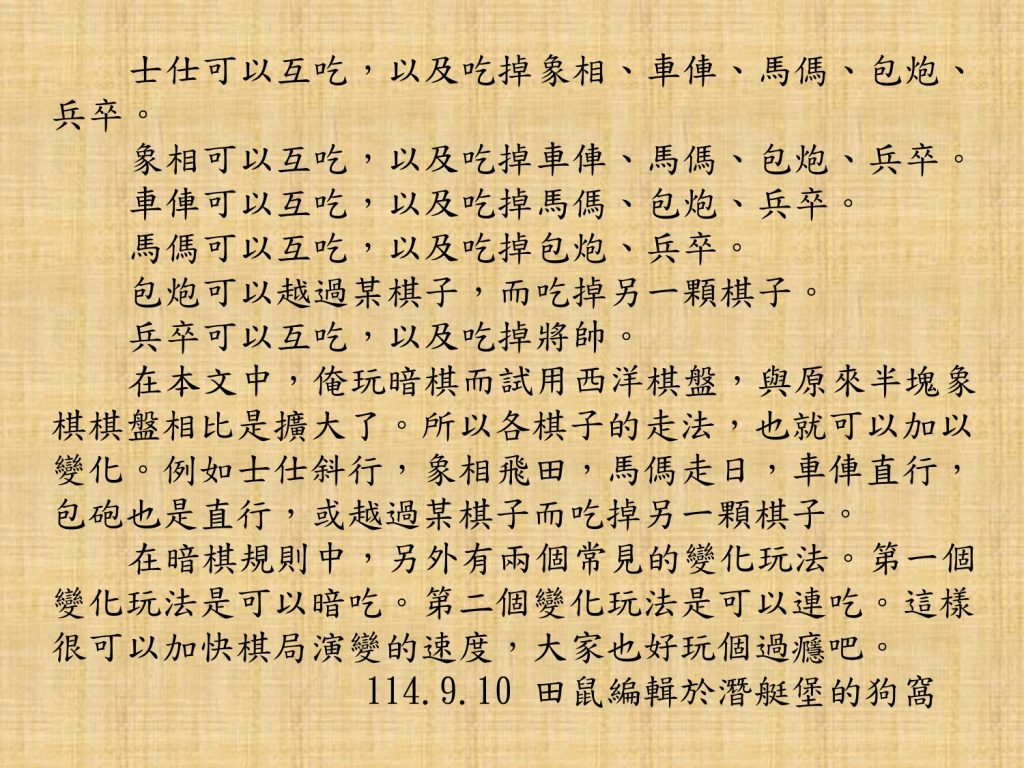 士仕可以互吃，以及吃掉象相、車俥、馬傌、包炮、
兵卒。
象相可以互吃，以及吃掉車俥、馬傌、包炮、兵卒。
車俥可以互吃，以及吃掉馬傌、包炮、兵卒。
馬傌可以互吃，以及吃掉包炮、兵卒。
包炮可以越過某棋子，而吃掉另一顆棋子。
兵卒可以互吃，以及吃掉將帥。
在本文中，俺玩暗棋而試用西洋棋盤，與原來半塊象
棋棋盤相比是擴大了。所以各棋子的走法，也就可以加以
變化。例如士仕斜行，象相飛田，馬傌走日，車俥直行，
包砲也是直行，或越過某棋子而吃掉另一顆棋子。
在暗棋規則中，另外有兩個常見的變化玩法。第一個
變化玩法是可以暗吃。第二個變化玩法是可以連吃。這樣
很可以加快棋局演變的速度，大家也好玩個過癮吧。
114.9.10 田鼠編輯於潛艇堡的狗窩